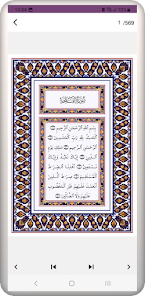 1 /569
سُورَةُ الْفَاتِحَةِ
بِسْمِ اللَّهِ الرَّحْمَٰنِ الرَّحِيمِ
الْحَمْدُ لِلَّهِ رَبِّ الْعَالَمِينَ
الرَّحْمَٰنِ الرَّحِيمِ مَالِكِ يَوْمِ
الدِّينِ إِيَّاكَ نَعْبُدُ وَإِيَّاكَ
نَسْتَعِينُ اهْدِنَا الصِّرَاطَ
الْمُسْتَقِيمَ صِرَاطَ الَّذِينَ
أَنْعَمْتَ عَلَيْهِمْ غَيْرِ الْمَغْضُوبِ
عَلَيْهِمْ وَلَا الضَّالِّينَ